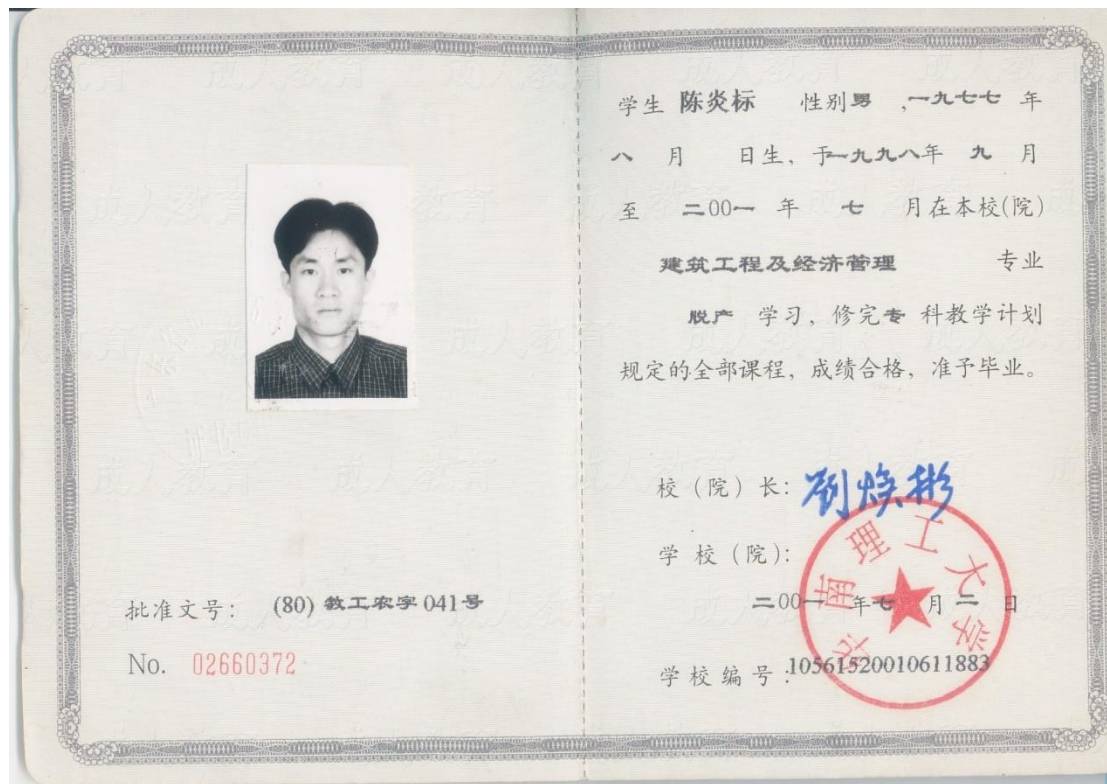 批准文号： (80) 教工农字 041号
No. 02660372
学生 陈炎标 性别男 ,一九七七 年
八 月 日生，于一九九八年 九 月
至 二00一 年 七 月在本校(院)
建筑工程及经济管理 专业
脱产 学习，修完专 科教学计划
规定的全部课程，成绩合格，准予毕业。
校（院）长：刘焕彬
学 校（院）：
华南理工大学
二00一 年七 月二 日
学 校 编 号 :10561520010611883
成人教育